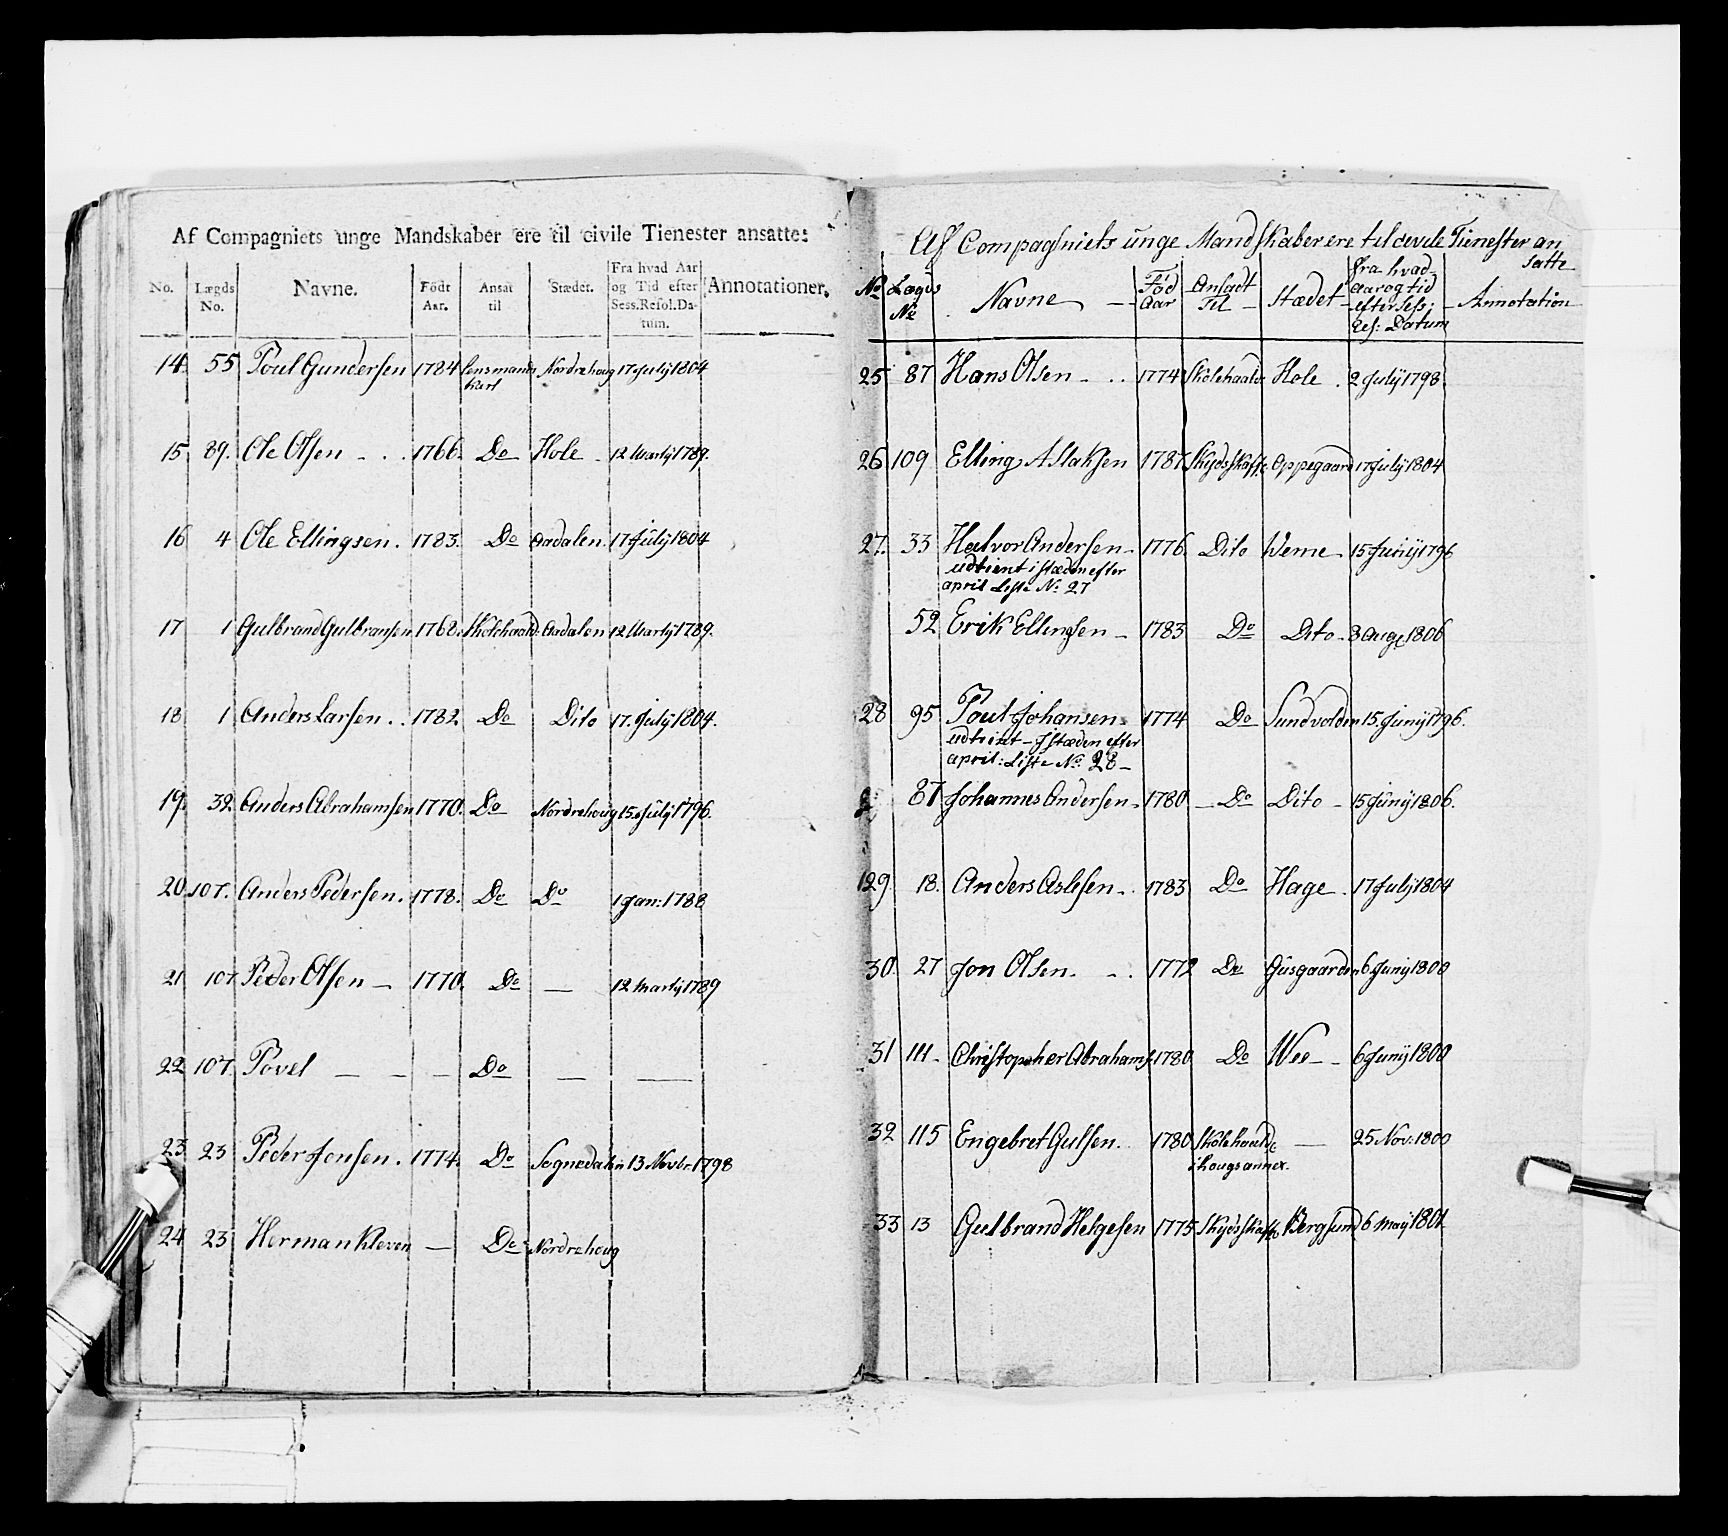 Af Compagniets unge Mandskaber ere til civile Tienester ansatte:
No. Lægds No. Navne. Födt Aar. Ansat til Stædet. Fra hvad Aar og Tid efter Sess. Resol. Datum. Annotationer.
14. 55 Poul Gundersen 1784 Lensmands Karl Nordrehoug 17 July 1804
15 89. Ole Olsen - . . 1766. Do Hole - 12 Martij 1789.
16 4 Ole Ellingsen. 1783. Do Aadalen. 17 July 1804
17 1 Gulbrand Gulbransen 1768. Skoleholder Aadalen 12 Martij 1789.
18 1 Anders Larsen . . 1782 Do Dito 17. July 1804.
19. 32 Anders Abrahamsen 1770. Do Nordrehoug 15. July 1796.
20 107. Anders Pedersen. 1778. Do Do 1 Jan: 1788
21 107 Peder Olsen — 1770. Do — 12 Martij 1789
22 107. Povel — — — Do — —
23 23 Peder Jonsen. 1774. Do Sognedalen 13 Novbr. 1798
24 23 Herman Kleven — Do Nordrehoug
Af Compagniets unge Mandskaber ere til civile Tienester an
satte
No Lægds No Navne — Föd Aar Ansadt Til — Stædet fra hvad Aar og tid efter Sess: Res: Datum Annotation
25 87 Hans Olsen - . . 1774 Skolehold: Hole . 2 July 1798.
26 109 Elling Aslaksen 1787 Skydsskaffe Oppegaard 17 July 1804
27. 33 Halvor Andersen - 1776. Dito Weme - 15 Junij 1796
udtient i stæden efter
april Liste No. 27
52 Erik Ellingsen - 1783 Do Dito - 8 Aug 1806
28 95 Poul Johansen 1774 Do Sundvolden 15. Junij 1796.
udtient - J stæden efter
april: Liste No. 28 -
87 Johannes Andersen - 1780 - Do Dito - 15 Junij 1806.
29 18. Anders Aslesen - . 1783 Do Hage. 17 July 1804
30. 27 Jon Olsen. - . . 1772 Do Gusgaarden 6 Junij 1800
31 111 - Christopher Abrahams: 1780 Do Wee - - 6 Junij 1800
32 115 Engebret Gulsen. 1780 Skolehold: — 25 Nov: 1800
i hougs annex.
33 13 Gulbrand Helgesen 1775 Skydsskaffe Bergsund 6 maij 1801